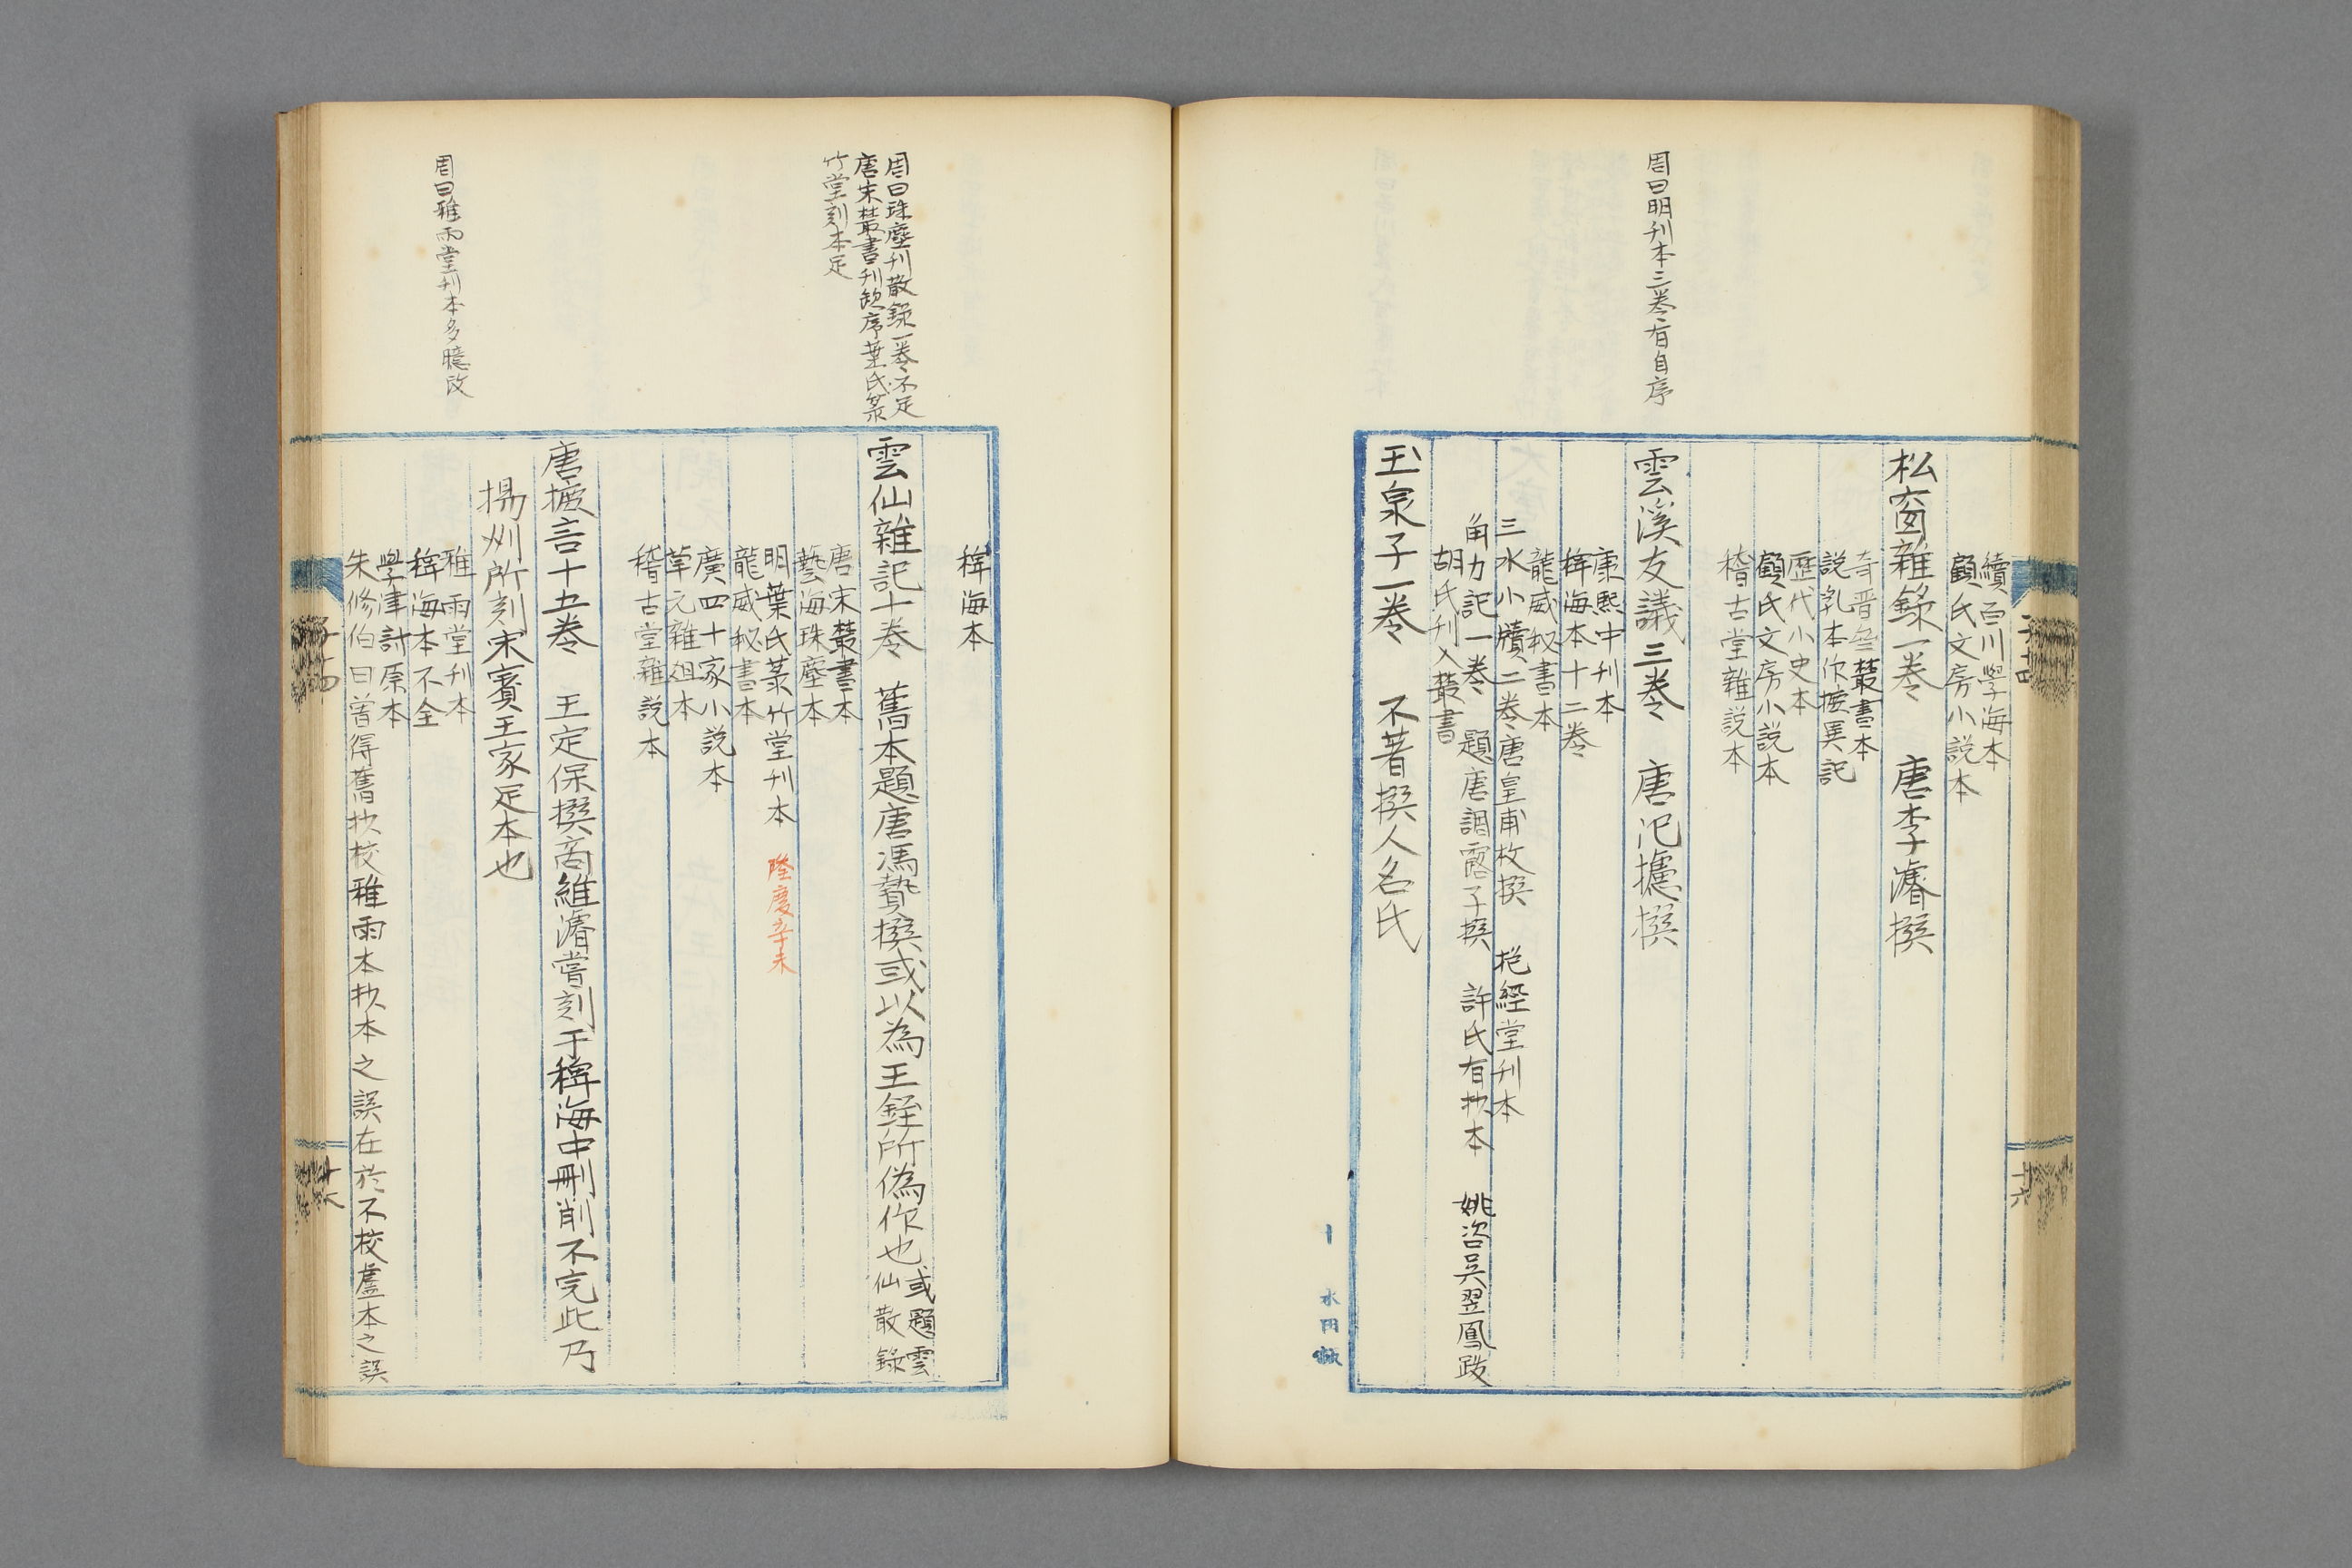 周曰明刊本三卷有自序
續百川學海本
顧氏文房小說本
松窗雜錄一卷 唐李濬撰
奇晋斋叢書本
説乳本作摭異記
歷代小史本
顧氏文房小説本
稽古堂雜説本
雲溪友議三卷 唐范攄撰
康熙中刊本
稗海本十二卷
龍威秘書本
三水小牘二卷唐皇甫枚撰 抱經堂刊本
角力記一卷 題唐調露子撰 許氏有抄本 姚咨吳翌鳳跋
胡氏刊入叢書
玉泉子一卷 不著撰人名氏
十六
周曰珠塵刊散錄一卷不足
唐宋叢書刊缺序葉氏菉
竹堂刻本足
周曰雅雨堂刊本多臆改
稗海本
雲仙雜記十卷 舊本題唐馮贄撰或以為王銍所偽作也或題雲
仙散錄
唐宋叢書本
藝海珠塵本
明葉氏菉竹堂刊本 隆慶辛未
龍威秘書本
廣四十家小説本
草元雜俎本
稽古堂雜説本
唐摭言十五卷 王定保撰商維濬嘗刻于稗海中刪削不完此乃
揚州所刻宋賓王家足本也
雅雨堂刊本
稗海本不全
學津討原本
朱修伯曰曾得舊抄校雅雨本抄本之誤在於不校盧本之誤